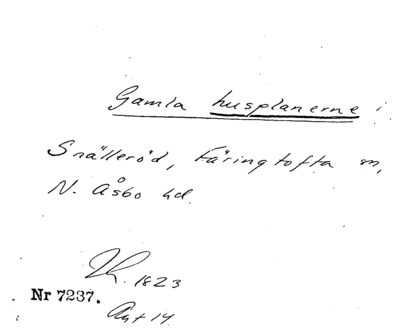 Gamla husplanerne i
Snälleröd, Färingtofta m,
N. Åsbo hd.
1823
Nr 7237.
Akt 14